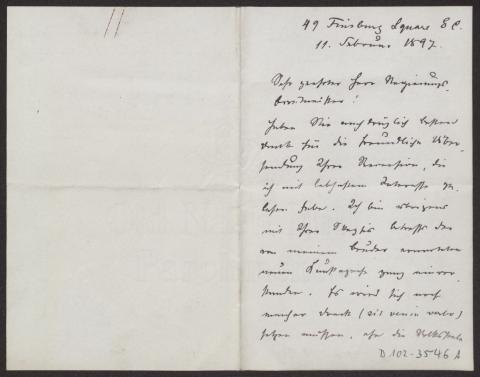 49 Finsbury Square E C.
11. Februar 1897.
Sehr geehrter Herr Regierungs-
baumeister!
Haben Sie nachträglich besten
Dank für die freundliche Über-
sendung Ihrer Recension, die
ich mit lebhaftem Interesse ge-
lesen habe. Ich bin übrigens
mit Ihrer Skepsis betreffs der
von meinem Bruder erwarteten
neuen ganz einver-
standen. Es wird sich noch
mancher Dreck (sit venia verbo)
setzen müssen, ehe die
D.102-3546 A